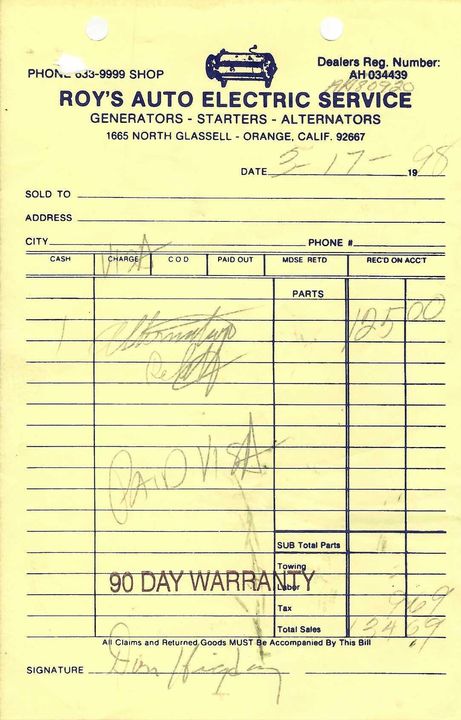 PHONE 633-9999 SHOP
Dealers Reg. Number:
AH 034439
ROY'S AUTO ELECTRIC SERVICE
GENERATORS - STARTERS - ALTERNATORS
1665 NORTH GLASSELL - ORANGE, CALIF. 92667
DATE 5-17- 1998
SOLD TO
ADDRESS
CITY PHONE #
CASH CHARGE COD PAID OUT MDSE RETD REC'D ON ACCT
VISA
PARTS
1 Alternator 125 00
PAID VISA
SUB Total Parts
Towing
90 DAY WARRANTY
Labor
Tax 9 69
Total Sales 134 69
All Claims and Returned Goods MUST Be Accompanied By This Bill
SIGNATURE Don